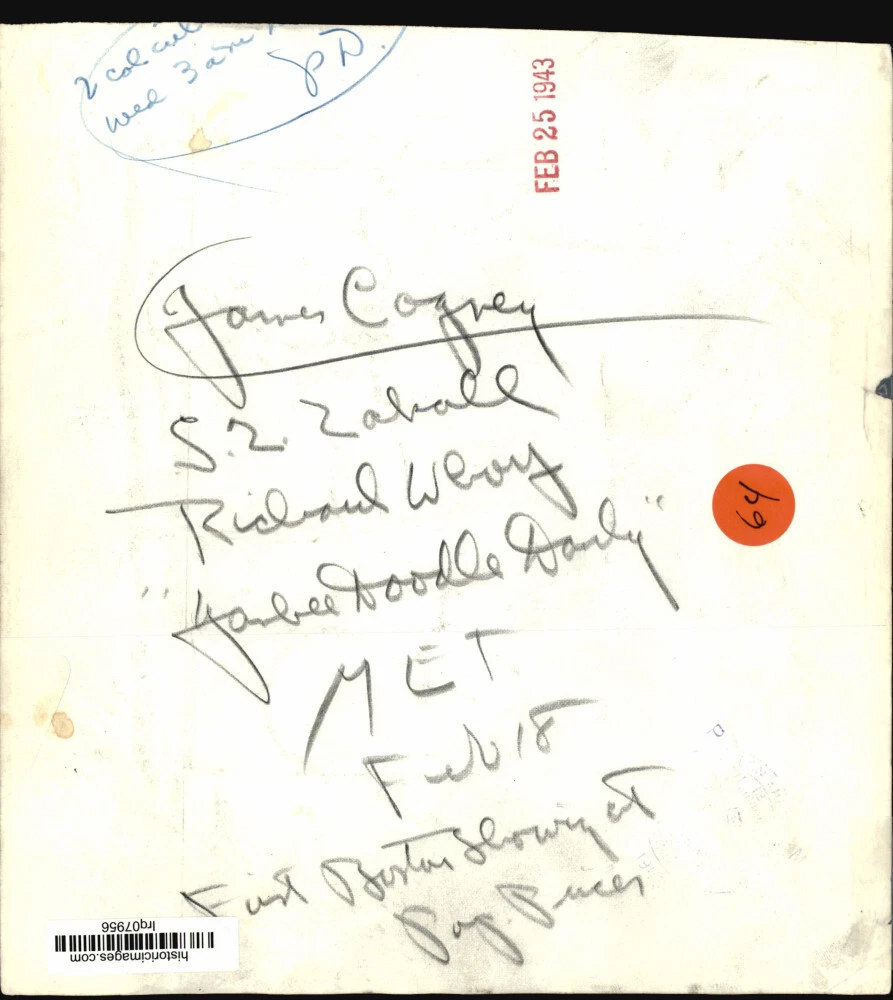 2 col cut
Wed 3 am
JD.
FEB 25 1943
James Cagney
S. Z. Zakall
Richard Whorf
"Yankee Doodle Dandy"
MET
Feb 18
First Boston Showing at
Pop. Prices
64
lrq07956
historicimages.com